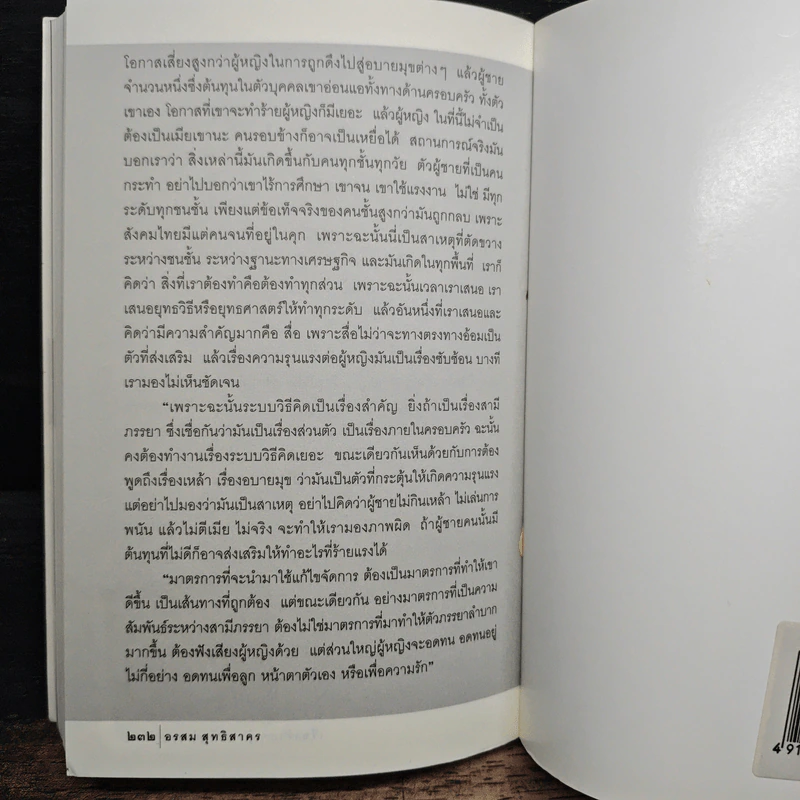 โอกาสเสี่ยงสูงกว่าผู้หญิงในการถูกดึงไปสู่อบายมุขต่างๆ แล้วผู้ชาย
จำนวนหนึ่งซึ่งต้นทุนในตัวบุคคลเขาอ่อนแอทั้งทางด้านครอบครัว ทั้งตัว
เขาเอง โอกาสที่เขาจะทำร้ายผู้หญิงก็มีเยอะ แล้วผู้หญิง ในที่นี้ไม่จำเป็น
ต้องเป็นเมียเขานะ คนรอบข้างก็อาจเป็นเหยื่อได้ สถานการณ์จริงมัน
บอกเราว่า สิ่งเหล่านี้มันเกิดขึ้นกับคนทุกชั้นทุกวัย ตัวผู้ชายที่เป็นคน
กระทำ อย่าไปบอกว่าเขาไร้การศึกษา เขาจน เขาใช้แรงงาน ไม่ใช่ มีทุก
ระดับทุกชนชั้น เพียงแต่ข้อเท็จจริงของคนชั้นสูงกว่ามันถูกกลบ เพราะ
สังคมไทยมีแต่คนจนที่อยู่ในคุก เพราะฉะนั้นนี่เป็นสาเหตุที่ตัดขวาง
ระหว่างชนชั้น ระหว่างฐานะทางเศรษฐกิจ และมันเกิดในทุกพื้นที่ เราก็
คิดว่า สิ่งที่เราต้องทำคือต้องทำทุกส่วน เพราะฉะนั้นเวลาเราเสนอ เรา
เสนอยุทธวิธีหรือยุทธศาสตร์ให้ทำทุกระดับ แล้วอันหนึ่งที่เราเสนอและ
คิดว่ามีความสำคัญมากคือ สื่อ เพราะสื่อไม่ว่าจะทางตรงทางอ้อมเป็น
ตัวที่ส่งเสริม แล้วเรื่องความรุนแรงต่อผู้หญิงมันเป็นเรื่องซับซ้อน บางที
เรามองไม่เห็นชัดเจน
“เพราะฉะนั้นระบบวิธีคิดเป็นเรื่องสำคัญ ยิ่งถ้าเป็นเรื่องสามี
ภรรยา ซึ่งเชื่อกันว่ามันเป็นเรื่องส่วนตัว เป็นเรื่องภายในครอบครัว ฉะนั้น
คงต้องทำงานเรื่องระบบวิธีคิดเยอะ ขณะเดียวกันเห็นด้วยกับการต้อง
พูดถึงเรื่องเหล้า เรื่องอบายมุข ว่ามันเป็นตัวที่กระตุ้นให้เกิดความรุนแรง
แต่อย่าไปมองว่ามันเป็นสาเหตุ อย่าไปคิดว่าผู้ชายไม่กินเหล้า ไม่เล่นการ
พนัน แล้วไม่ตีเมีย ไม่จริง จะทำให้เรามองภาพผิด ถ้าผู้ชายคนนั้นมี
ต้นทุนที่ไม่ดีก็อาจส่งเสริมให้ทำอะไรที่ร้ายแรงได้
“มาตรการที่จะนำมาใช้แก้ไขจัดการ ต้องเป็นมาตรการที่ทำให้เขา
ดีขึ้น เป็นเส้นทางที่ถูกต้อง แต่ขณะเดียวกัน อย่างมาตรการที่เป็นความ
สัมพันธ์ระหว่างสามีภรรยา ต้องไม่ใช่มาตรการที่มาทำให้ตัวภรรยาลำบาก
มากขึ้น ต้องฟังเสียงผู้หญิงด้วย แต่ส่วนใหญ่ผู้หญิงจะอดทน อดทนอยู่
ไม่กี่อย่าง อดทนเพื่อลูก หน้าตาตัวเอง หรือเพื่อความรัก”
๒๓๒ | อรสม สุทธิสาคร
4 91